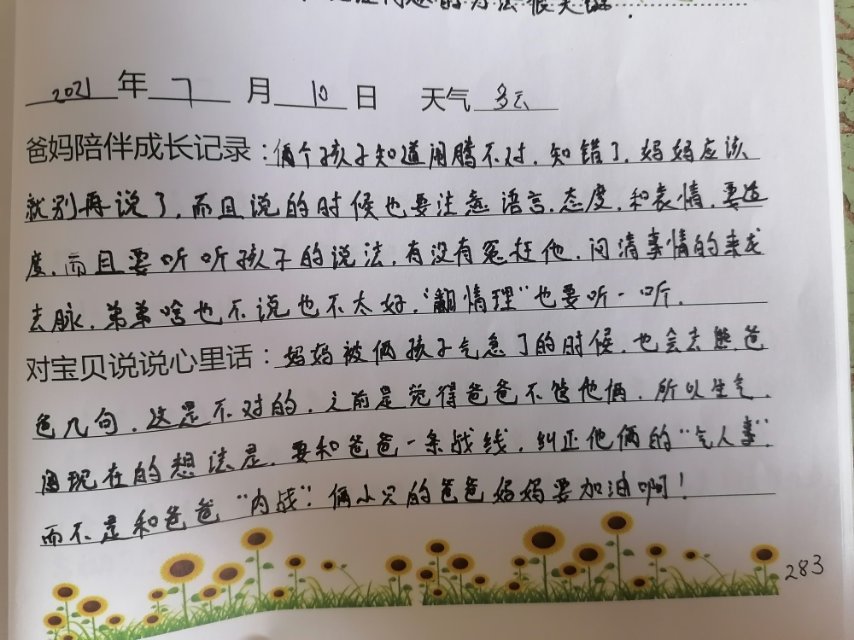 的方法很关键.
2021年7月10日 天气 多云
爸妈陪伴成长记录:俩个孩子知道闹腾不对,知错了,妈妈应该
就别再说了,而且说的时候也要注意语言,态度,和表情,要适
度,而且要听听孩子的说法,有没有冤枉他,问清事情的来龙
去脉,弟弟啥也不说也不太好,“翻情理”也要听一听.
对宝贝说说心里话:妈妈被俩孩子气急了的时候,也会去熊爸
爸几句,这是不对的,之前是觉得爸爸不管他俩,所以生气,
但现在的想法是,要和爸爸一条战线,纠正他俩的“气人事”,
而不是和爸爸“内战”:俩小只的爸爸妈妈要加油啊!
283